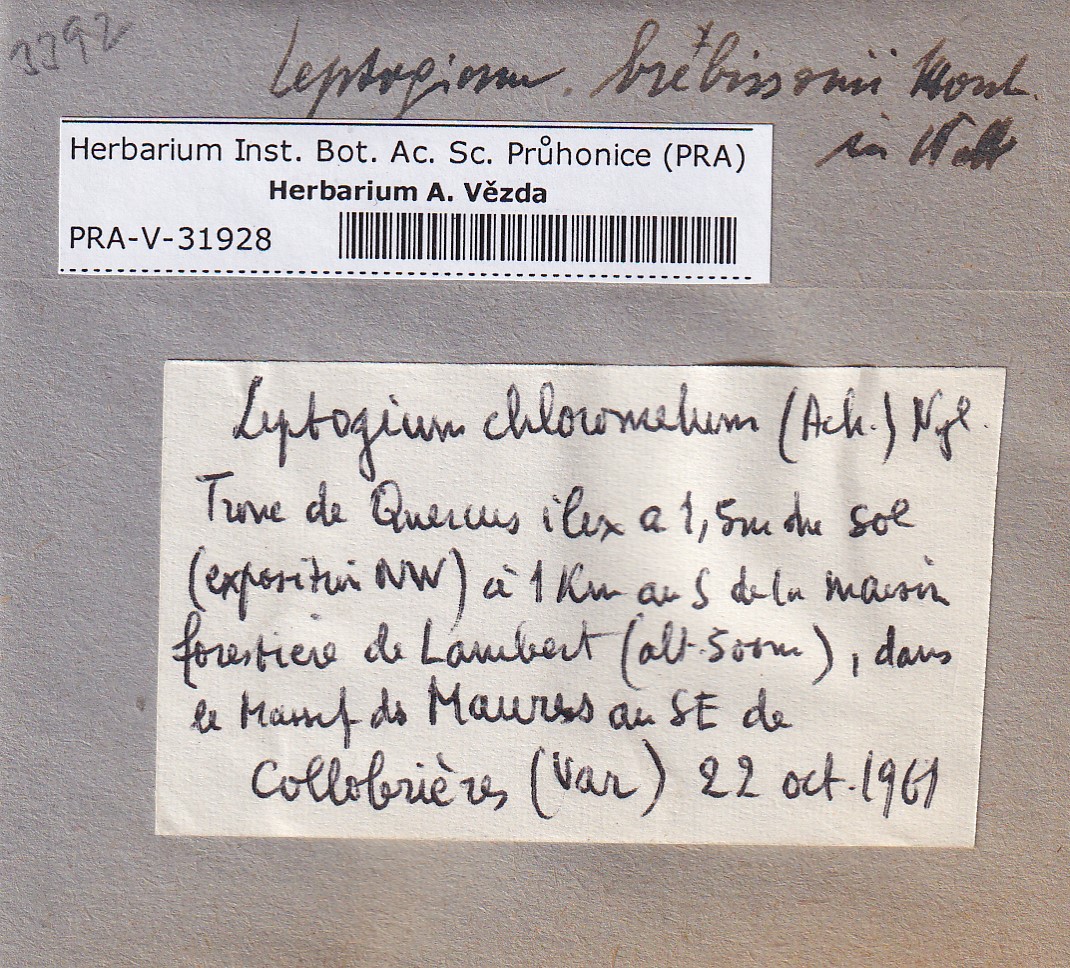 3392
Leptogium. brébissonii Mont.
in Webb
Herbarium Inst. Bot. Ac. Sc. Průhonice (PRA)
Herbarium A. Vězda
PRA-V-31928
Leptogium chloromelum (Ach.) Nyl.
Tronc de Quercus ilex a 1,5m du sol
(exposition NW) à 1 Km au S de la maison
forestiere de Lambert (alt. 500m), dans
le Massif des Maures au SE de
Collobrières (Var) 22 oct. 1961